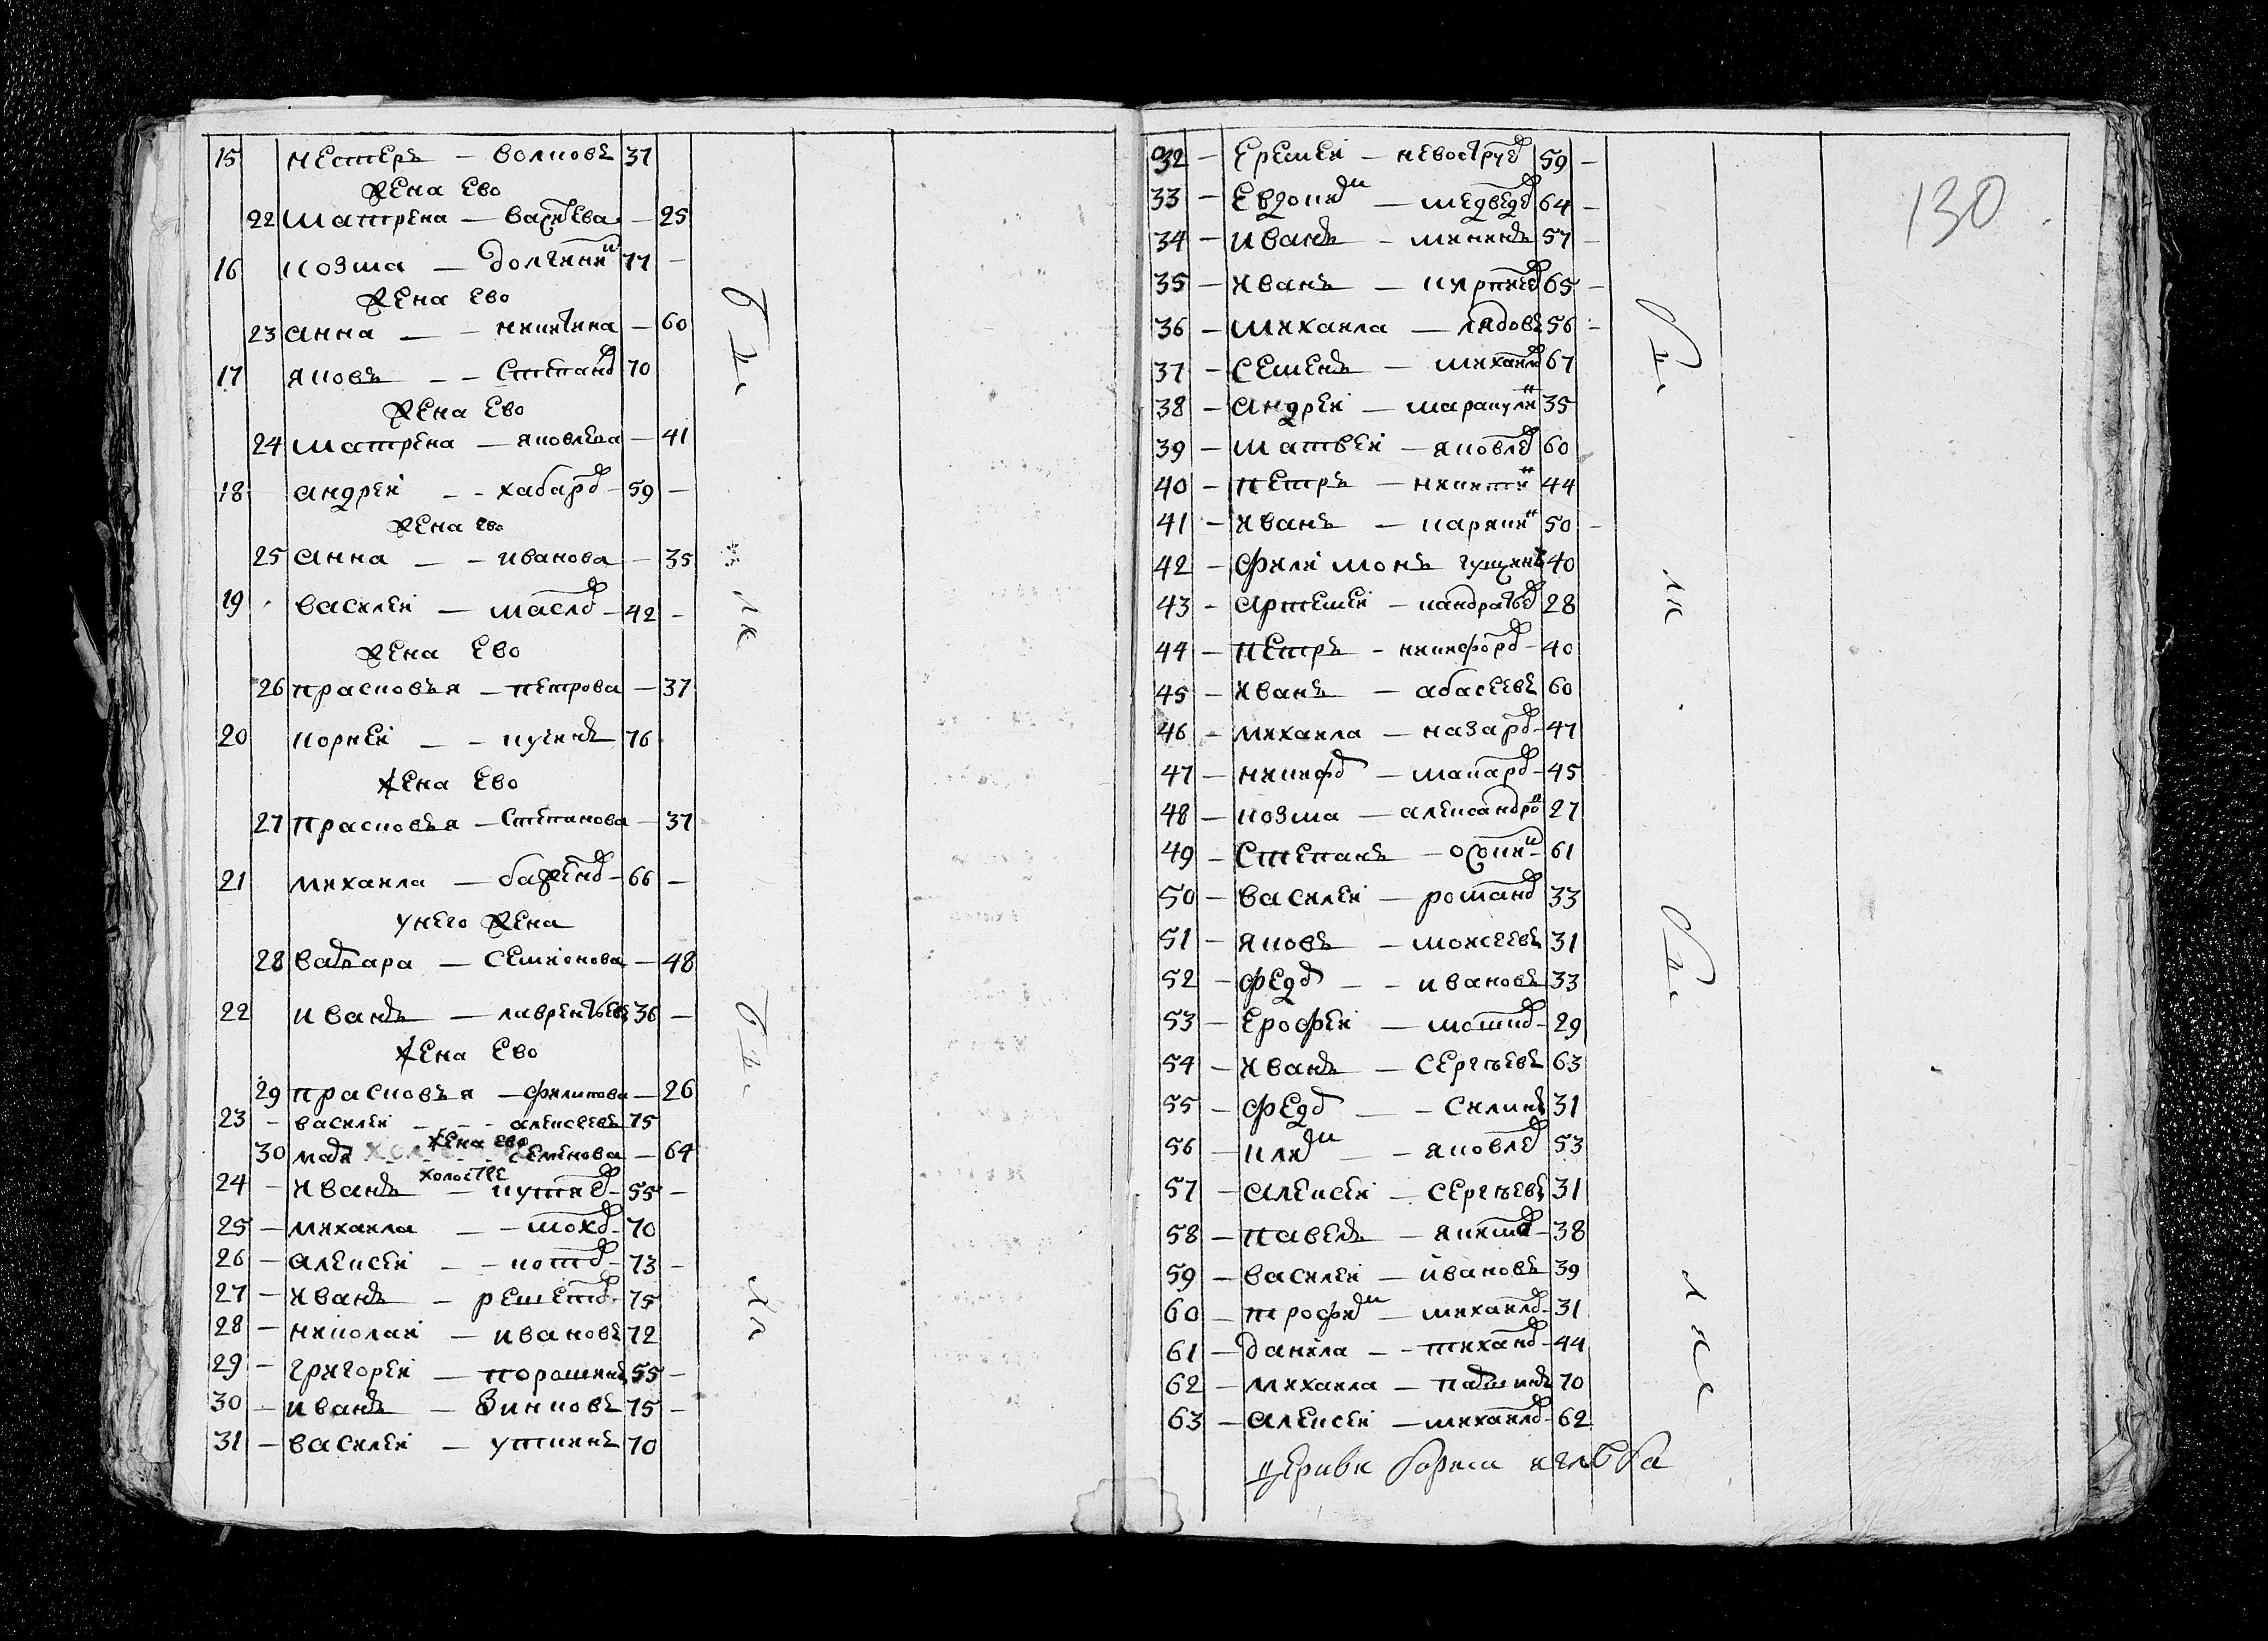 15 нестеръ — волковъ 37
жена ево
22 матрена — васильева — 25
16 козма — долгихъ 77 —
жена ево
23 анна — — никитина — 60
17 яковъ — — степанов 70
жена ево
24 матрена — яковлева — 41
18 андреи — — хабаров — 59 —
жена ево
25 анна — — иванова — 35
19 василеи — маслов — 42 —
жена ево
26 прасковья — петрова — 37
20 корнеи — — кучинъ 76
жена ево
27 прасковья — степанова — 37
21 михаила — баженов — 66 —
у него жена
28 варвара — семионова — 48
22 иванъ — лаврентьевъ 36 —
жена ево
29 прасковья — филипова — 26
23 — василеи — — — алексеевъ 75
жена ево
30 семенова — 64
холостые
24 — иванъ — 55 —
25 — михаила — — мохов — 70
26 — алексеи — — котов — 73 —
27 — иванъ — решетов — 75
28 — николаи — ивановъ 72
29 — григореи — порошинъ 55 —
30 — иванъ — зинковъ 75 —
31 — василеи — уткинъ 70
130
32 — еремеи — невоструев 59 —
33 — евдоким — медведев 64 —
34 — иванъ — мининъ 57 —
35 — иванъ — 65 —
36 — михаила — лядовъ 56 —
37 — семенъ — михаилов 67
38 — андреи — шаракулин 35
39 — матвеи — яковлев 60
40 — петръ — никитин 44
41 — иванъ — карякин 50 —
42 — филимонъ гущинъ 40
43 — артемеи — кандратьев 28
44 — петръ — никифоров — 40
45 — иванъ — абасеевъ 60
46 — михаила — назаров — 47
47 — никифор — макаров — 45
48 — козма — александров 27
49 — степанъ — 61
50 — василеи — романов 33
51 — яковъ — моисеевъ 31
52 — федор — — ивановъ 33
53 — ерофеи — — 29
54 — иванъ — сергѣевъ 63
55 — федор — — силинъ 31
56 — клим — — яковлев 53
57 — алексеи — сергѣевъ 31
58 — павелъ — якимов — 38
59 — василеи — ивановъ 39
60 — трофим — михаилов — 31
61 — данила — — тиханов — 44
62 — михаила — паршинъ 70
63 — алексеи — михаилов — 62
церкви бориса и глѣба